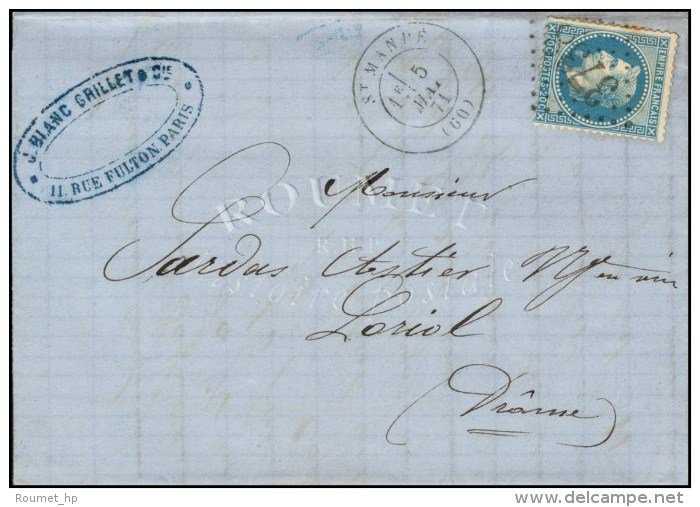 J. BLANC GRILLET & CIE
11. RUE FULTON. PARIS
ST MANDÉ
1E 5
MAI
71
(60)
EMPIRE FRANÇAIS
20C POSTES 20C
ROUMET
Monsieur
Pardas Astier Nt en vin
Loriol
(Drôme)
Roumet_hp
www.delcampe.net